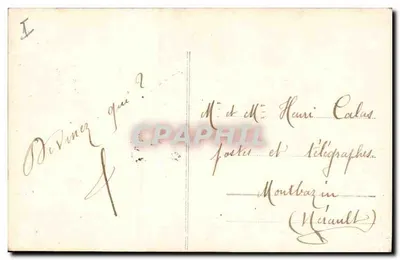 I
Devinez qui ?
Mr et Mme Henri Calas
postes et télégraphes
Montbazin
(Hérault)
PRPhoto